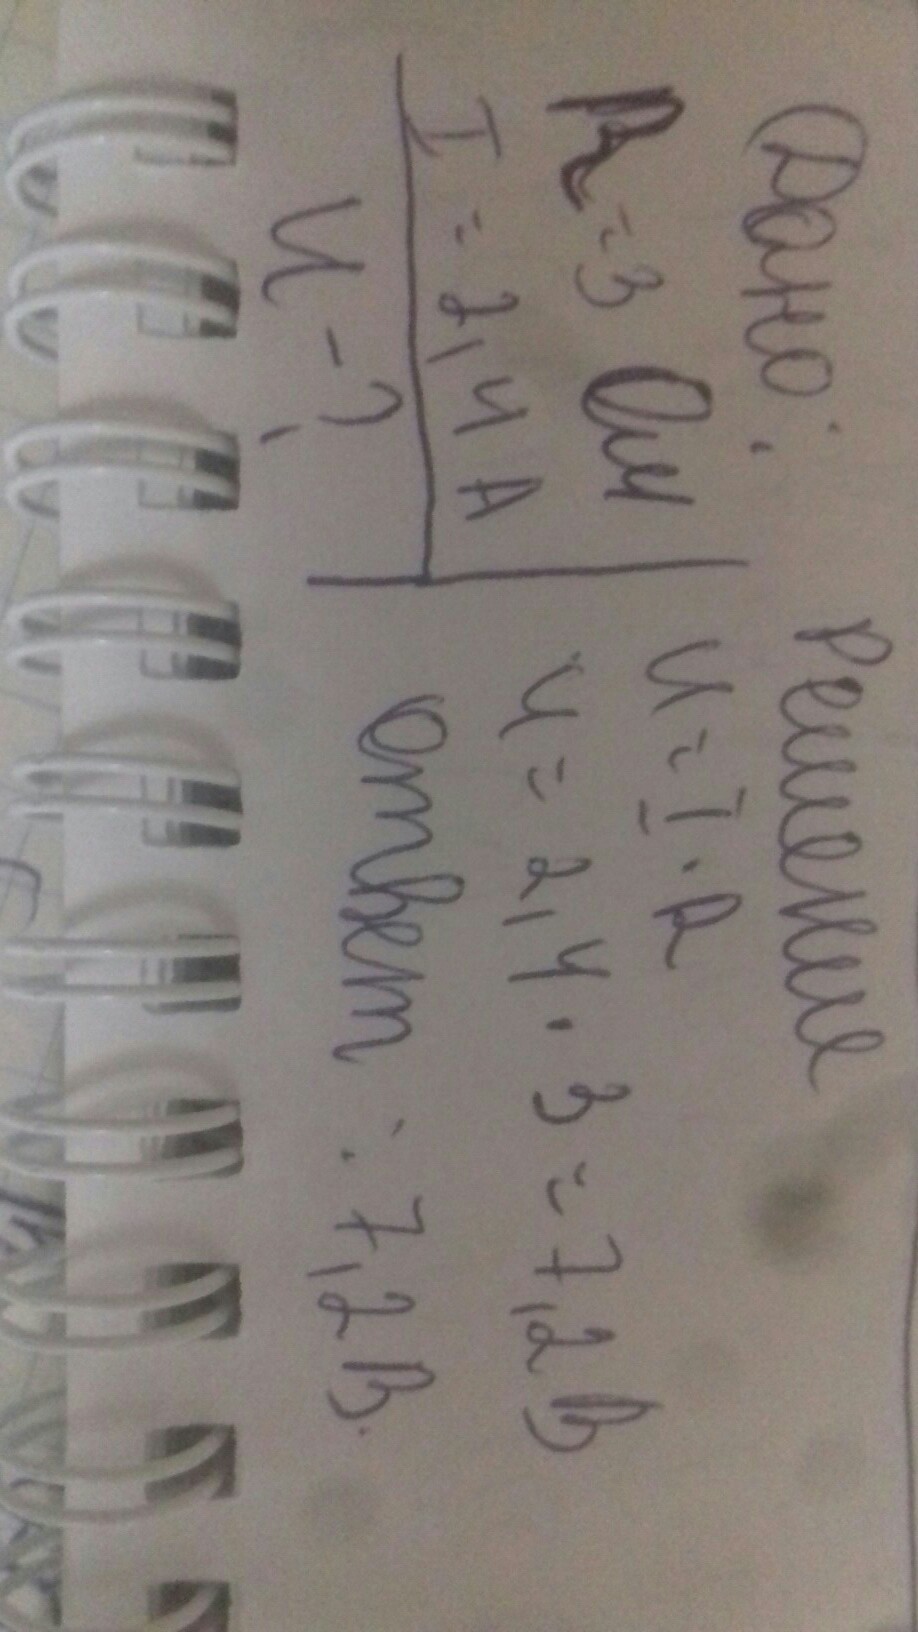 Дано:
R = 3 Ом
I = 2,4 А
U - ?
Решение
U = I · R
U = 2,4 · 3 = 7,2 В
Ответ : 7,2 В.